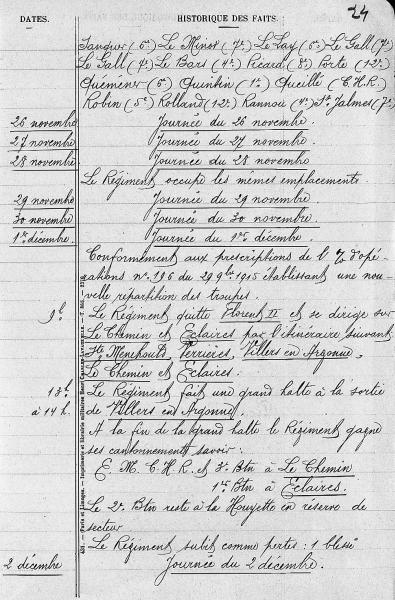 24
DATES. HISTORIQUE DES FAITS.
Jandur (6e) Le Minor (7e) Le Lay (6e) Le Gall (7e)
Le Gall (7e) Le Bars (4e) Picard (8e) Porte (12e)
Quémener (6e) Quintin (1e) Queillé (C.H.R.)
Robin (5e) Rolland (12e) Rannou (4e) St Jalmes (7e)
26 novembre Journée du 26 novembre.
27 novembre Journée du 27 novembre.
28 novembre Journée du 28 novembre.
Le Régiment occupe les mêmes emplacements.
29 novembre Journée du 29 novembre.
30 novembre Journée du 30 novembre.
1er décembre. Journée du 1er décembre.
Conformément aux prescriptions de l' d'opé-
rations n° 196 du 29 9bre 1915 établissant une nou-
velle répartition des troupes.
9h. Le Régiment quitte Florent II et se dirige sur
Le Chemin et Eclaires par l'itinéraire suivant
Ste Menehould, Verrières, Villers en Argonne,
Le Chemin et Eclaires.
13h. Le Régiment fait une grand halte à la sortie
à 14h. de Villers en Argonne.
A la fin de la grand halte le Régiment gagne
ses cantonnements savoir:
E. M. C.H.R. et 3e Btn à Le Chemin
1er Btn à Eclaires.
Le 2e Btn reste à la Houyette en réserve de
secteur
Le Régiment subit comme pertes: 1 blessé
2 décembre Journée du 2 décembre.